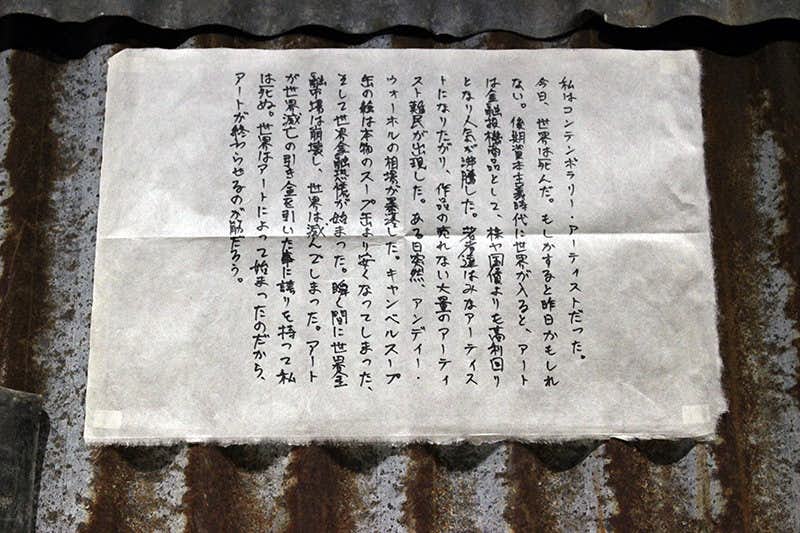 私はコンテンポラリー・アーティストだった。
今日、世界は死んだ。もしかすると昨日かもしれ
ない。後期資本主義時代に世界が入ると、アート
は金融投機商品として、株や国債よりも高利回り
となり人気が沸騰した。若者達はみなアーティス
トになりたがり、作品の売れない大量のアーティ
スト難民が出現した。ある日突然、アンディー・
ウォーホルの相場が暴落した。キャンベルスープ
缶の絵は本物のスープ缶より安くなってしまった、
そして世界金融恐慌が始まった。瞬く間に世界金
融市場は崩壊し、世界は滅んでしまった。アート
が世界滅亡の引き金を引いた事に誇りを持って私
は死ぬ。世界はアートによって始まったのだから、
アートが終わらせるのが筋だろう。